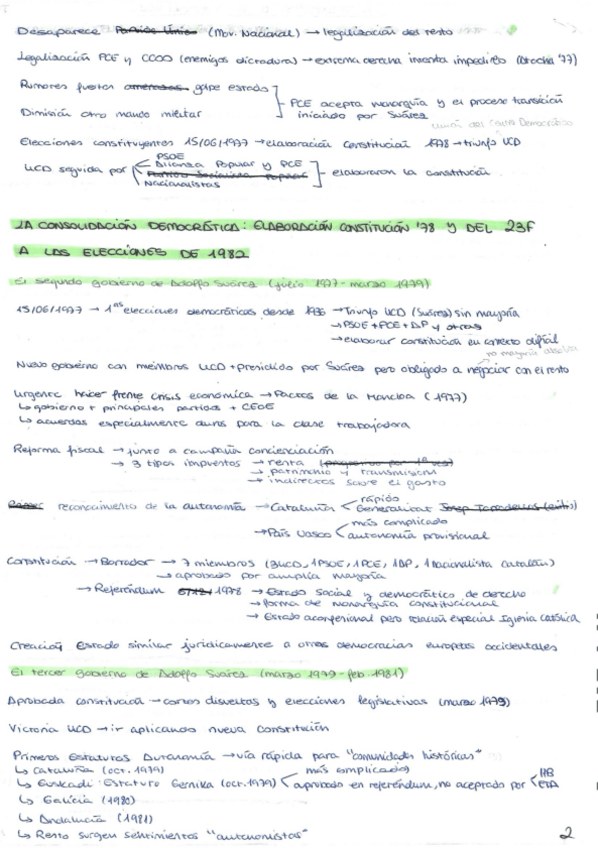 Desaparece Partido Único (Mov. Nacional) → legalización del resto
Legalización PCE y CCOO (enemigos dictadura) → extrema derecha intenta impedirlo (Atocha '77)
Rumores fuertes amenazas golpe estado
Dimisión otro mando militar
PCE acepta monarquía y el proceso transición iniciado por Suárez
Unión del Centro Democrático
Elecciones constituyentes 15/06/1977 → elaboración Constitución 1978 → triunfo UCD
UCD seguida por
PSOE
Alianza Popular y PCE
Partido Socialista Popular
Nacionalistas
elaboraron la constitución
LA CONSOLIDACIÓN DEMOCRÁTICA: ELABORACIÓN CONSTITUCIÓN '78 Y DEL 23F
A LAS ELECCIONES DE 1982
El segundo gobierno de Adolfo Suárez (julio 1977 - marzo 1979)
15/06/1977 → 1ªs elecciones democráticas desde 1936 → Triunfo UCD (Suárez) sin mayoría
→ PSOE + PCE + AP y otros
→ elaborar constitución en contexto difícil
no mayoría absoluta
Nuevo gobierno con miembros UCD + presidido por Suárez pero obligado a negociar con el resto
Urgente hacer frente crisis económica → Pactos de la Moncloa (1977)
↳ gobierno + principales partidos + CEOE
↳ acuerdos especialmente duros para la clase trabajadora
Reforma fiscal → junto a campaña concienciación
→ 3 tipos impuestos → renta
→ patrimonio y transmisión
→ indirectos sobre el gasto
reconocimiento de la autonomía → Cataluña
rápido
Generalitat Josep Tarradellas (exilio)
→ País Vasco
más complicado
autonomía provisional
Constitución → Borrador → 7 miembros (3UCD, 1PSOE, 1PCE, 1AP, 1 nacionalista catalán)
→ aprobado por amplia mayoría
→ Referéndum 6/12/1978 → Estado social y democrático de derecho
→ forma de monarquía constitucional
→ Estado aconfesional pero relación especial Iglesia Católica
Creación Estado similar jurídicamente a otras democracias europeas occidentales
El tercer gobierno de Adolfo Suárez (marzo 1979 - feb. 1981)
Aprobada constitución → cortes disueltas y elecciones legislativas (marzo 1979)
Victoria UCD → ir aplicando nueva Constitución
Primeros Estatutos Autonomía → vía rápida para "comunidades históricas"
↳ Cataluña (oct. 1979)
↳ Euskadi: Estatuto Gernika (oct. 1979)
más complicado
aprobado en referéndum, no aceptado por
HB
ETA
↳ Galicia (1980)
↳ Andalucía (1981)
↳ Resto surgen sentimientos "autonomistas"
2